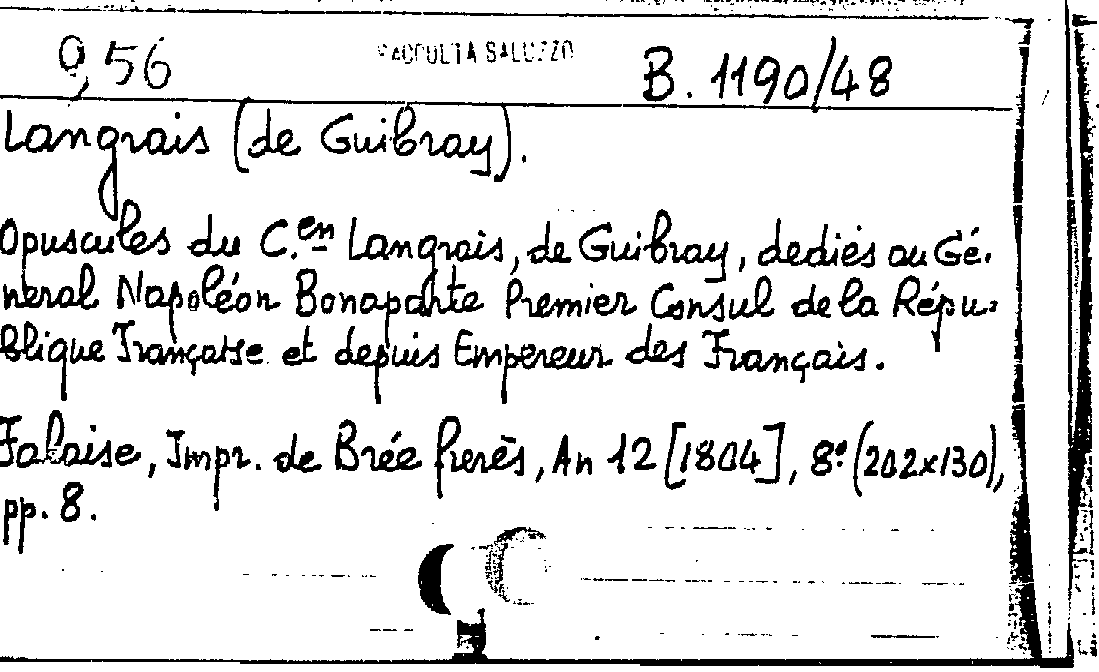 956
RACCOLTA SALUZZO
B. 1190/48
Langrais (de Guibray).
Opuscules du C.en Langrais, de Guibray, dediés au Gé-
neral Napoléon Bonaparte Premier Consul de la Répu-
blique Française et depuis Empereur des Français.
Falaise, Impr. de Brée frerès, An 12 [1804], 8º (202x130),
pp. 8.